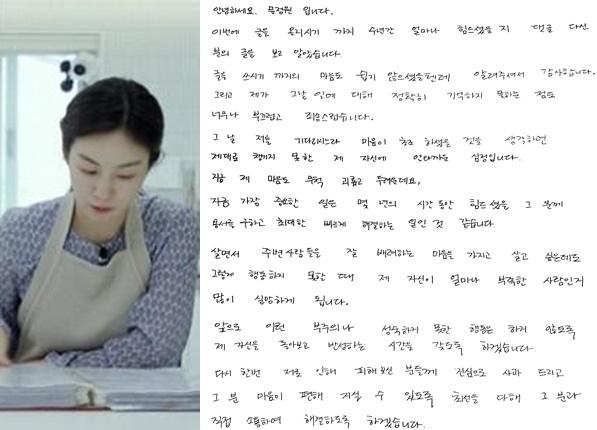 안녕하세요. 문정원 입니다.
이번에 글을 올리시기 까지 수년간 얼마나 힘드셨을지 댓글 다신
분의 글을 보고 알았습니다.
글을 쓰시기 까지의 마음도 쉽지 않으셨을텐데 알려주셔서 감사합니다.
그리고 제가 그날 일에 대해 정확히 기억하지 못하는 점도
너무나 부끄럽고 죄송스럽습니다.
그 날 저를 기다리시느라 마음이 초조 하셨을 것을 생각하면
제대로 챙기지 못한 제 자신에 안타까운 심정입니다.
지금 제 마음도 무척 괴롭고 두려운데요,
지금 가장 중요한 일은 몇 년의 시간 동안 힘드셨을 그 분께
용서를 구하고 최대한 빠르게 해결하는 일인 것 같습니다.
살면서 주변 사람들을 잘 배려하는 마음을 가지고 살고 싶은데도
그렇게 행동하지 못한 때 제 자신이 얼마나 부족한 사람인지
많이 실망하게 됩니다.
앞으로 이런 부주의나 성숙하지 못한 행동은 하지 않도록
제 자신을 돌아보고 반성하는 시간을 갖도록 하겠습니다.
다시 한번 저로 인해 피해보신 분들께 진심으로 사과 드리고
그 분 마음이 편해 지실 수 있도록 최선을 다해 그 분과
직접 소통하여 해결하도록 하겠습니다.